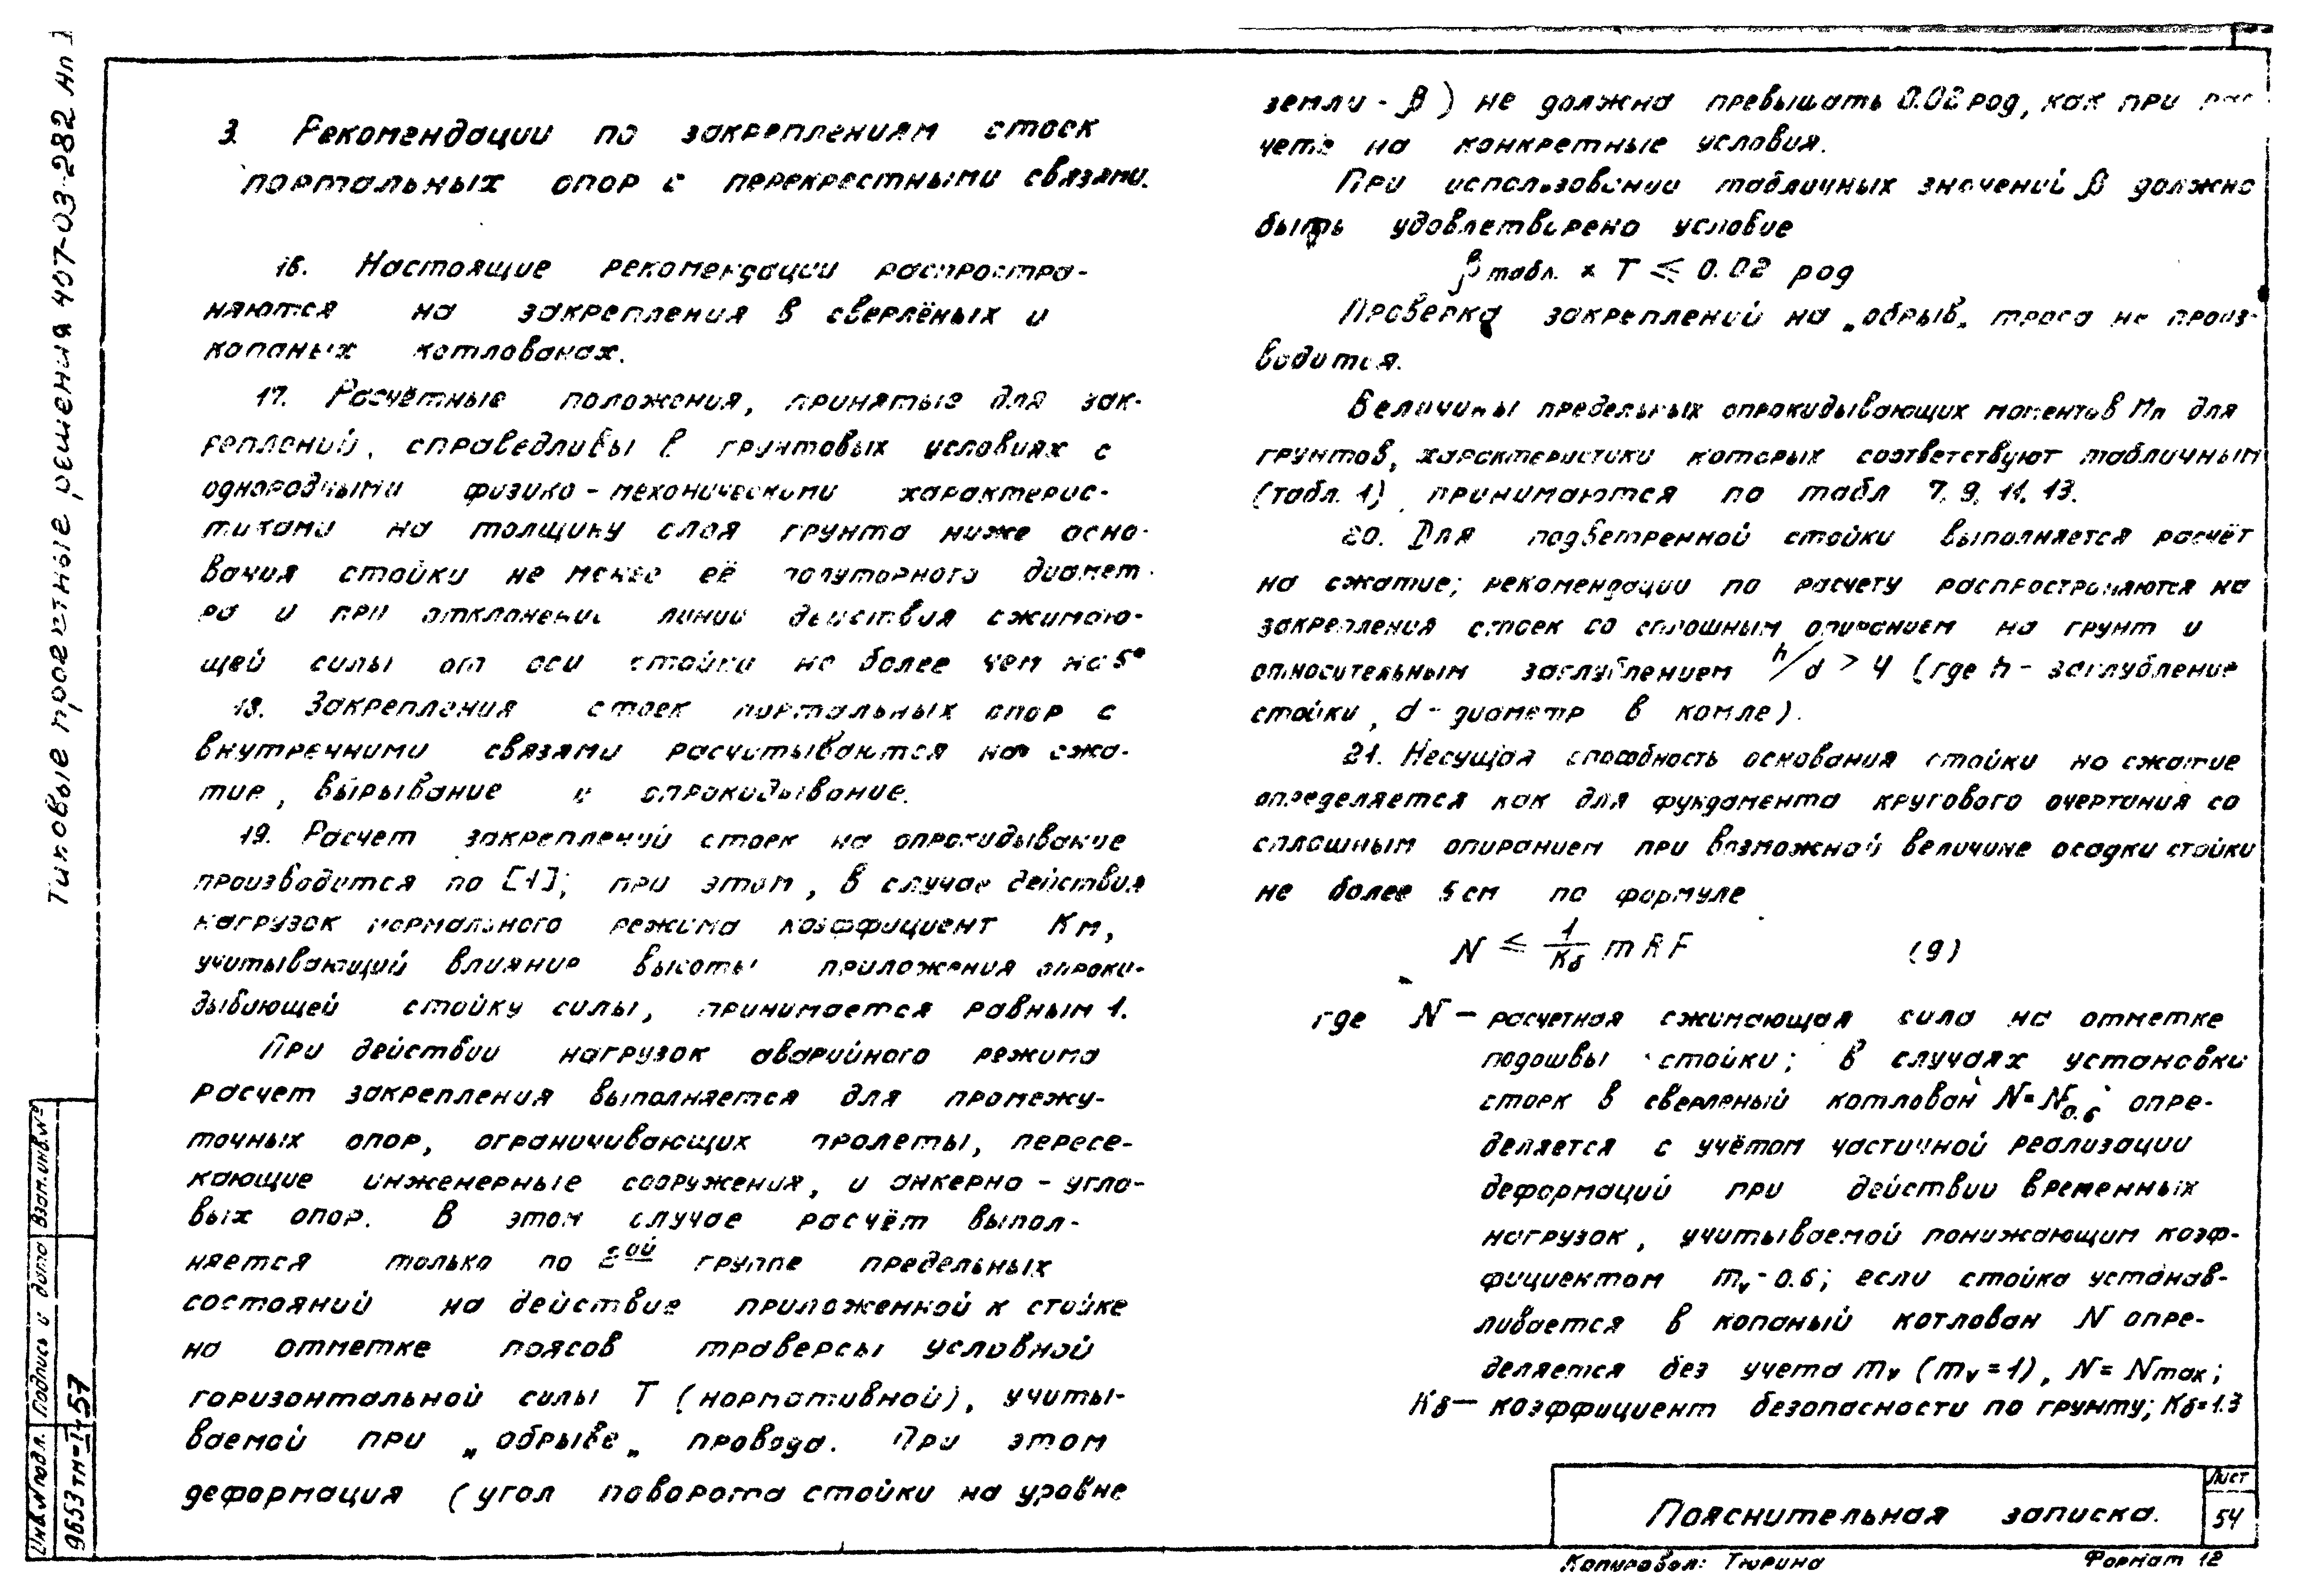 Типовые проектные решения 407-03-282 Ал 1
3. Рекомендации по закреплениям стоек
портальных опор с перекрестными связями.
16. Настоящие рекомендации распростра-
няются на закрепления в сверлёных и
копаных котлованах.
17. Расчётные положения, принятые для зак-
реплений, справедливы в грунтовых условиях с
однородными физико-механическими характерис-
тиками на толщину слоя грунта ниже осно-
вания стойки не менее её полуторного диамет-
ра и при отклонении линии действия сжимаю-
щей силы от оси стойки не более чем на 5°
18. Закрепления стоек портальных опор с
внутренними связями расчитываются на сжа-
тие, вырывание и опрокидывание.
19. Расчет закреплений стоек на опрокидывание
производится по [1]; при этом, в случае действия
нагрузок нормального режима коэффициент Км,
учитывающий влияние высоты приложения опроки-
дывающей стойку силы, принимается равным 1.
При действии нагрузок аварийного режима
расчет закрепления выполняется для промежу-
точных опор, ограничивающих пролеты, пересе-
кающие инженерные сооружения, и анкерно-угло-
вых опор. В этом случае расчёт выпол-
няется только по 2ой группе предельных
состояний на действие приложенной к стойке
на отметке поясов траверсы условной
горизонтальной силы Т (нормативной), учиты-
ваемой при „обрыве„ провода. При этом
деформация (угол поворота стойки на уровне
земли - β) не должна превышать 0.02 рад, как при рас-
чете на конкретные условия.
При использовании табличных значений β должно
быть удовлетворено условие
β табл. × Т ⩽ 0.02 рад
Проверка закреплений на „обрыв„ троса не произ-
водится.
Величины предельных опрокидывающих моментов Мп для
грунтов, характеристики которых соответствуют табличным
(табл. 1) принимаются по табл 7, 9, 11, 13.
20. Для подветренной стойки выполняется расчёт
на сжатие; рекомендации по расчету распространяются на
закрепления стоек со сплошным опиранием на грунт и
относительным заглублением h/d > 4 (где h - заглубление
стойки, d - диаметр в комле).
21. Несущая способность основания стойки на сжатие
определяется как для фундамента кругового очертания со
сплошным опиранием при возможной величине осадки стойки
не более 5 см по формуле
N ⩽ 1/Кб m R F (9)
где N — расчетная сжимающая сила на отметке
подошвы стойки; в случаях установки
стоек в сверленый котлован N=N0.6 опре-
деляется с учётом частичной реализации
деформаций при действии временных
нагрузок, учитываемой понижающим коэф-
фициентом mv - 0.6; если стойка устанав-
ливается в копаный котлован N опре-
деляется без учета mv (mv=1), N= Nmax;
Кб — коэффициент безопасности по грунту; Кб=1.3
Пояснительная записка.
Лист
54
Копировал: Тюрина Формат 12
Взам.инв.№
Подпись и дата
Инв.№подл.
9653тм-т457